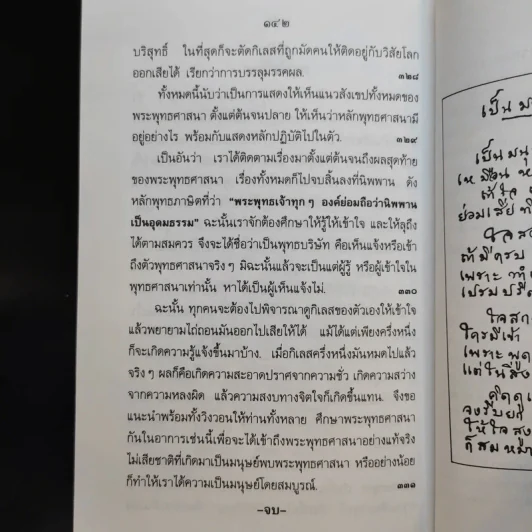 ๑๔๒
บริสุทธิ์ ในที่สุดก็จะตัดกิเลสที่ถูกมัดคนให้ติดอยู่กับวิสัยโลก
ออกเสียได้ เรียกว่าการบรรลุมรรคผล. ๓๒๘
ทั้งหมดนี้นับว่าเป็นการแสดงให้เห็นแนวสังเขปทั้งหมดของ
พระพุทธศาสนา ตั้งแต่ต้นจนปลาย ให้เห็นว่าหลักพุทธศาสนามี
อยู่อย่างไร พร้อมกับแสดงหลักปฏิบัติไปในตัว. ๓๒๙
เป็นอันว่า เราได้ติดตามเรื่องมาตั้งแต่ต้นจนถึงผลสุดท้าย
ของพระพุทธศาสนา เรื่องทั้งหมดก็ไปจบสิ้นลงที่นิพพาน ดัง
หลักพุทธภาษิตที่ว่า “พระพุทธเจ้าทุก ๆ องค์ย่อมถือว่านิพพาน
เป็นอุดมธรรม” ฉะนั้นเราจักต้องศึกษาให้รู้ให้เข้าใจ และให้ลุถึง
ได้ตามสมควร จึงจะได้ชื่อว่าเป็นพุทธบริษัท คือเห็นแจ้งหรือเข้า
ถึงตัวพุทธศาสนาจริง ๆ มิฉะนั้นแล้วจะเป็นแต่ผู้รู้ หรือผู้เข้าใจใน
พุทธศาสนาเท่านั้น หาได้เป็นผู้เห็นแจ้งไม่. ๓๓๐
ฉะนั้น ทุกคนจะต้องไปพิจารณาดูกิเลสของตัวเองให้เข้าใจ
แล้วพยายามไถ่ถอนมันออกไปเสียให้ได้ แม้ได้แต่เพียงครึ่งหนึ่ง
ก็จะเกิดความรู้แจ้งขึ้นมาบ้าง. เมื่อกิเลสครึ่งหนึ่งมันหมดไปแล้ว
จริง ๆ ผลก็คือเกิดความสะอาดปราศจากความชั่ว เกิดความสว่าง
จากความหลงผิด แล้วความสงบทางจิตใจก็เกิดขึ้นแทน. จึงขอ
แนะนำพร้อมทั้งวิงวอนให้ท่านทั้งหลาย ศึกษาพระพุทธศาสนา
กันในอาการเช่นนี้เพื่อจะได้เข้าถึงพระพุทธศาสนาอย่างแท้จริง
ไม่เสียชาติที่เกิดมาเป็นมนุษย์พบพระพุทธศาสนา หรืออย่างน้อย
ก็ทำให้เราได้ความเป็นมนุษย์โดยสมบูรณ์. ๓๓๑
–จบ–
เป็นม
เป็นมนุ
เหมือนห
ย่อมเสียที
ใจส
ถ้ามีครบ
เพราะ
เปรมปรี
ใจสก
ใครมีเข้า
เพราะพูด
แต่ในสิ่ง
คิดดู
จงรีบยก
ให้ใจสูง
ก็สมหมา